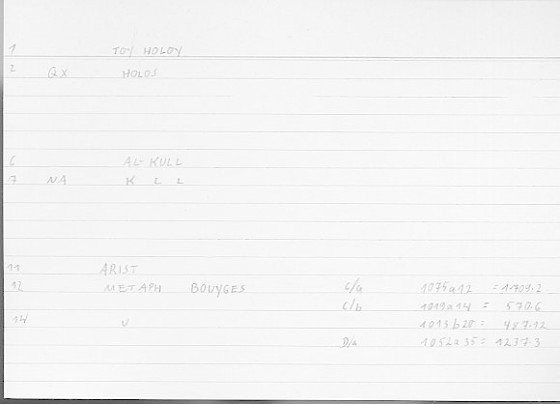 1 TOY HOLOY
2 QX HOLOS
6 AL-KULL
7 NA K L L
11 ARIST
12 METAPH BOUYGES c/a 1075a12 = 1709.2
c/b 1019a14 = 570.6
14 V 1015b28 = 487.12
D/a 1052a35 = 1237.3